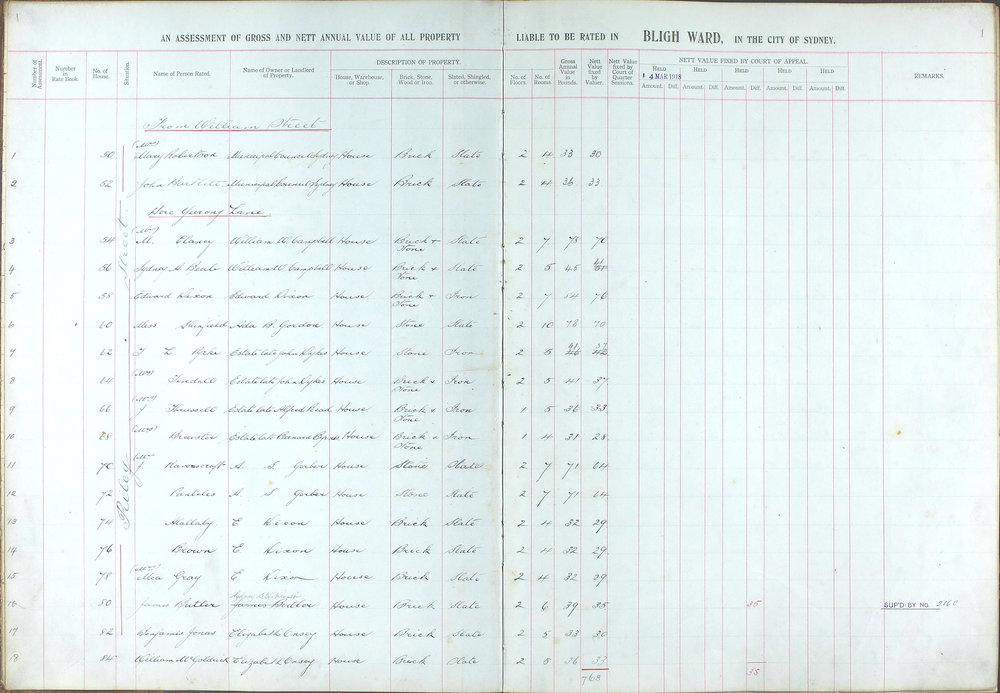 1
1
AN ASSESSMENT OF GROSS AND NETT ANNUAL VALUE OF ALL PROPERTY LIABLE TO BE RATED IN BLIGH WARD, IN THE CITY OF SYDNEY.
Number of Assessment. Number in Rate Book. No. of House. Situation. Name of Person Rated. Name of Owner or Landlord of Property. DESCRIPTION OF PROPERTY. House, Warehouse, or Shop. Brick, Stone, Wood or Iron. Slated, Shingled, or otherwise. No. of Floors. No. of Rooms. Gross Annual Value in Pounds. Nett Value fixed by Valuer. Nett Value fixed by Court of Quarter Sessions. NETT VALUE FIXED BY COURT OF APPEAL. REMARKS.
HELD HELD HELD HELD HELD
14 MAR 1918
Amount. Diff. Amount. Diff. Amount. Diff. Amount. Diff. Amount. Diff.
Riley Street
From William Street
1 50 (Mrs) Mary Robertson Municipal Council Sydney House Brick Slate 2 4 33 30
2 52 John Bartlett Municipal Council Sydney House Brick Slate 2 4 36 33
Here Yurong Lane
3 54 (Mrs) M. Clancy William W. Campbell House Brick & Stone Slate 2 7 78 70
4 56 Sydney A Beale William W Campbell House Brick & Stone Slate 2 5 45 41
5 58 Edward Dixon Edward Dixon House Brick & Stone Iron 2 7 84 76
6 60 Miss Ada B. Gordon House Stone Slate 2 10 78 70
7 62 T L Estate late John Dykes House Stone Iron 2 5 41 46 37 42
8 64 (Mrs) Tindall Estate late John Dykes House Brick & Stone Iron 2 5 41 37
9 66 (Mrs) J Estate late Alfred Read House Brick & Stone Iron 1 5 36 33
10 68 (Mrs) Brewster Estate late Bernard Byrnes House Brick & Stone Iron 1 4 31 28
11 70 (Mrs) J Ravenscroft A. S Garber House Stone Slate 2 7 71 64
12 72 Panteles A. S Garber House Stone Slate 2 7 71 64
13 74 Mallaby E Dixon House Brick Slate 2 4 32 29
14 76 Brown E Dixon House Brick Slate 2 4 32 29
15 78 (Mrs) Gray E Dixon House Brick Slate 2 4 32 29
16 80 James Butler Sydney James House Brick Slate 2 6 39 35 35 SUP'D BY No. 2160
17 82 Benjamin Jonas Elizabeth Casey House Brick Slate 2 5 33 30
18 84 William McGoldrick Elizabeth Casey House Brick Slate 2 5 36 33
768 35